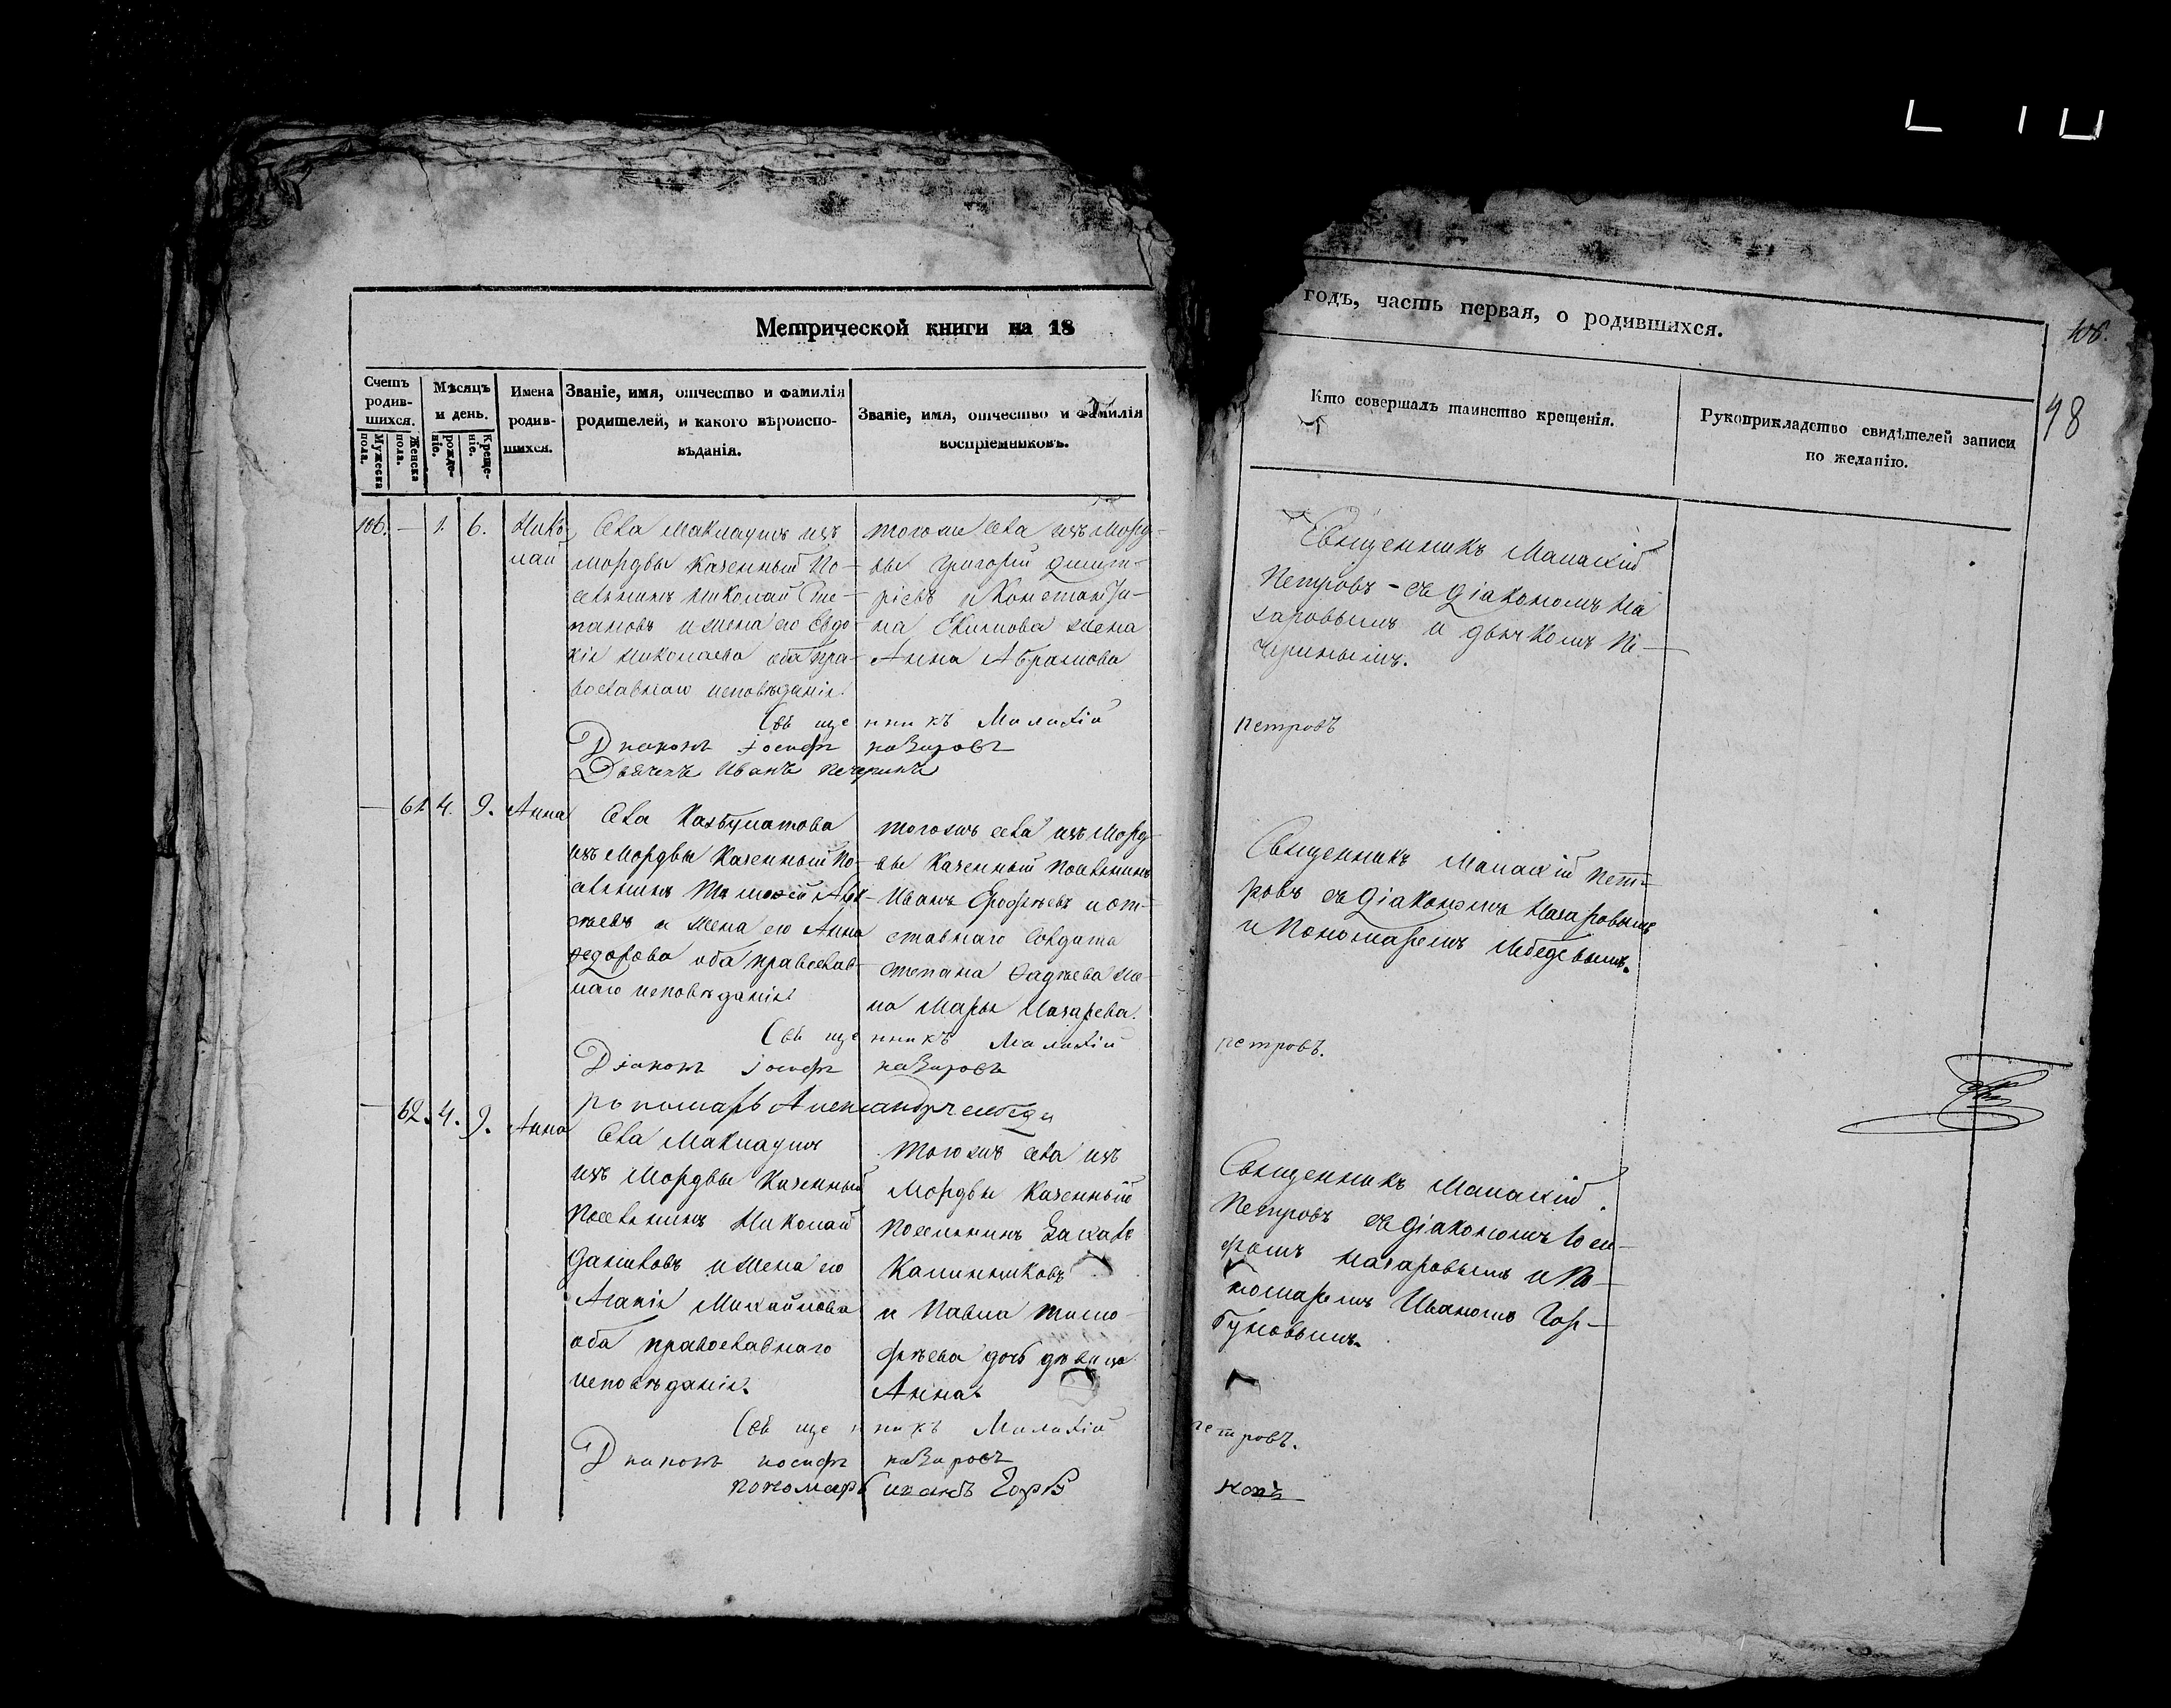 Метрической книги на 18
годъ, часть первая, о родившихся.
106.
98
Счетъ родив-
шихся.
Мужеска пола.
Женска пола.
Мѣсяцъ
и день.
рожде-
ніе.
Креще-
ніе.
Имена
родив-
шихся.
Званіе, имя, отчество и фамилія
родителей, и какого вѣроиспо-
вѣданія.
Званіе, имя, отчество и фамилія
воспріемниковъ.
Кто совершалъ таинство крещенія.
Рукоприкладство свидѣтелей записи
по желанію.
106. — 1. 6. Нико
лай
Села Маклаушъ изъ
мордвы Казенный По-
селянинъ Николай Сте-
пановъ и жена его Евдо
кія Николаева оба пра-
вославнаго исповѣданія.
тогоже села изъ Морд-
вы Григорій Димит-
ріевъ и
на жена
Анна Абрамова
Священникъ Малахій
Петровъ – съ Діакономъ На
заровымъ и дьячкомъ Пе-
черинымъ.
Священникъ Малахій петровъ
Діаконъ Іосифъ назаровъ
Дьячекъ Иванъ печеринъ
— 61. 4. 9. Анна
Села
изъ Мордвы Казенный По-
селянинъ Тимофей
и жена его Анна
Федорова оба православ-
наго исповѣданія.
тогожъ села изъ Морд-
вы Казенный Поселянинъ
Иванъ Ерофѣевъ и от-
ставнаго Солдата
Степана Фадѣева же-
на Марья Назарева.
Священникъ Малахій Пет-
ровъ съ Діакономъ Назаровымъ
и Пономаремъ Лебедевымъ.
Священникъ Малахій петровъ.
Діаконъ іосифъ назаровъ
пономарь Александръ лебеди
— 62. 4. 9. Анна
Села Маклаушъ
изъ Мордвы Казенный
Поселянинъ Николай
Даниловъ и жена его
Агапія Михайлова
оба православнаго
исповѣданія.
тогожъ села изъ
Мордвы Казенный
Поселянинъ Захаръ
Калинниковъ
и Павла Тимо-
фѣева дочь дѣвица
Анна.
Священникъ Малахій
Петровъ съ Діакономъ Іоси-
фомъ Назаровымъ и По-
номаремъ Иваномъ Гор-
буновымъ.
Священникъ Малахій петровъ.
Діаконъ иосифъ назаровъ
пономарь иванъ Горб